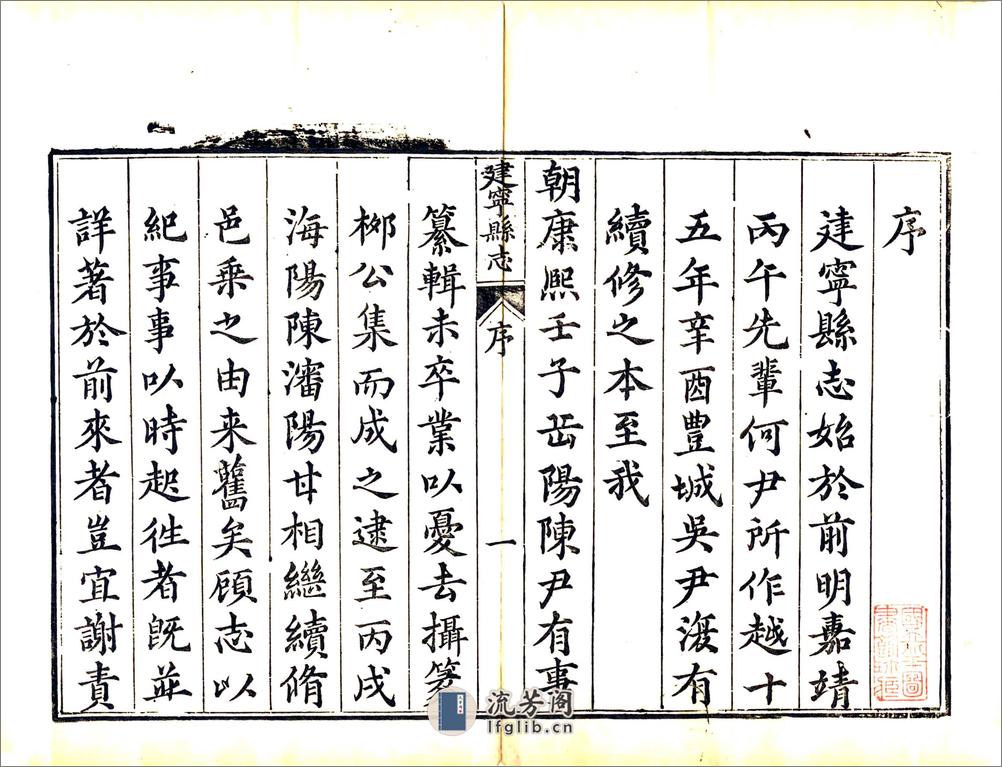 序
建寧縣志始於前明嘉靖
丙午先輩何尹所作越十
五年辛酉豐城吳尹漢有
續修之本至我
朝康熈壬子岳陽陳尹有事
建寧縣志
序
一
纂輯未卒業以憂去攝篆
栁公集而成之逮至丙戌
海陽陳瀋陽甘相繼續脩
邑乘之由来舊矣顧志以
紀事事以時起徃者既並
詳著於前來者豈宜謝責
流芳阁
lfglib.cn